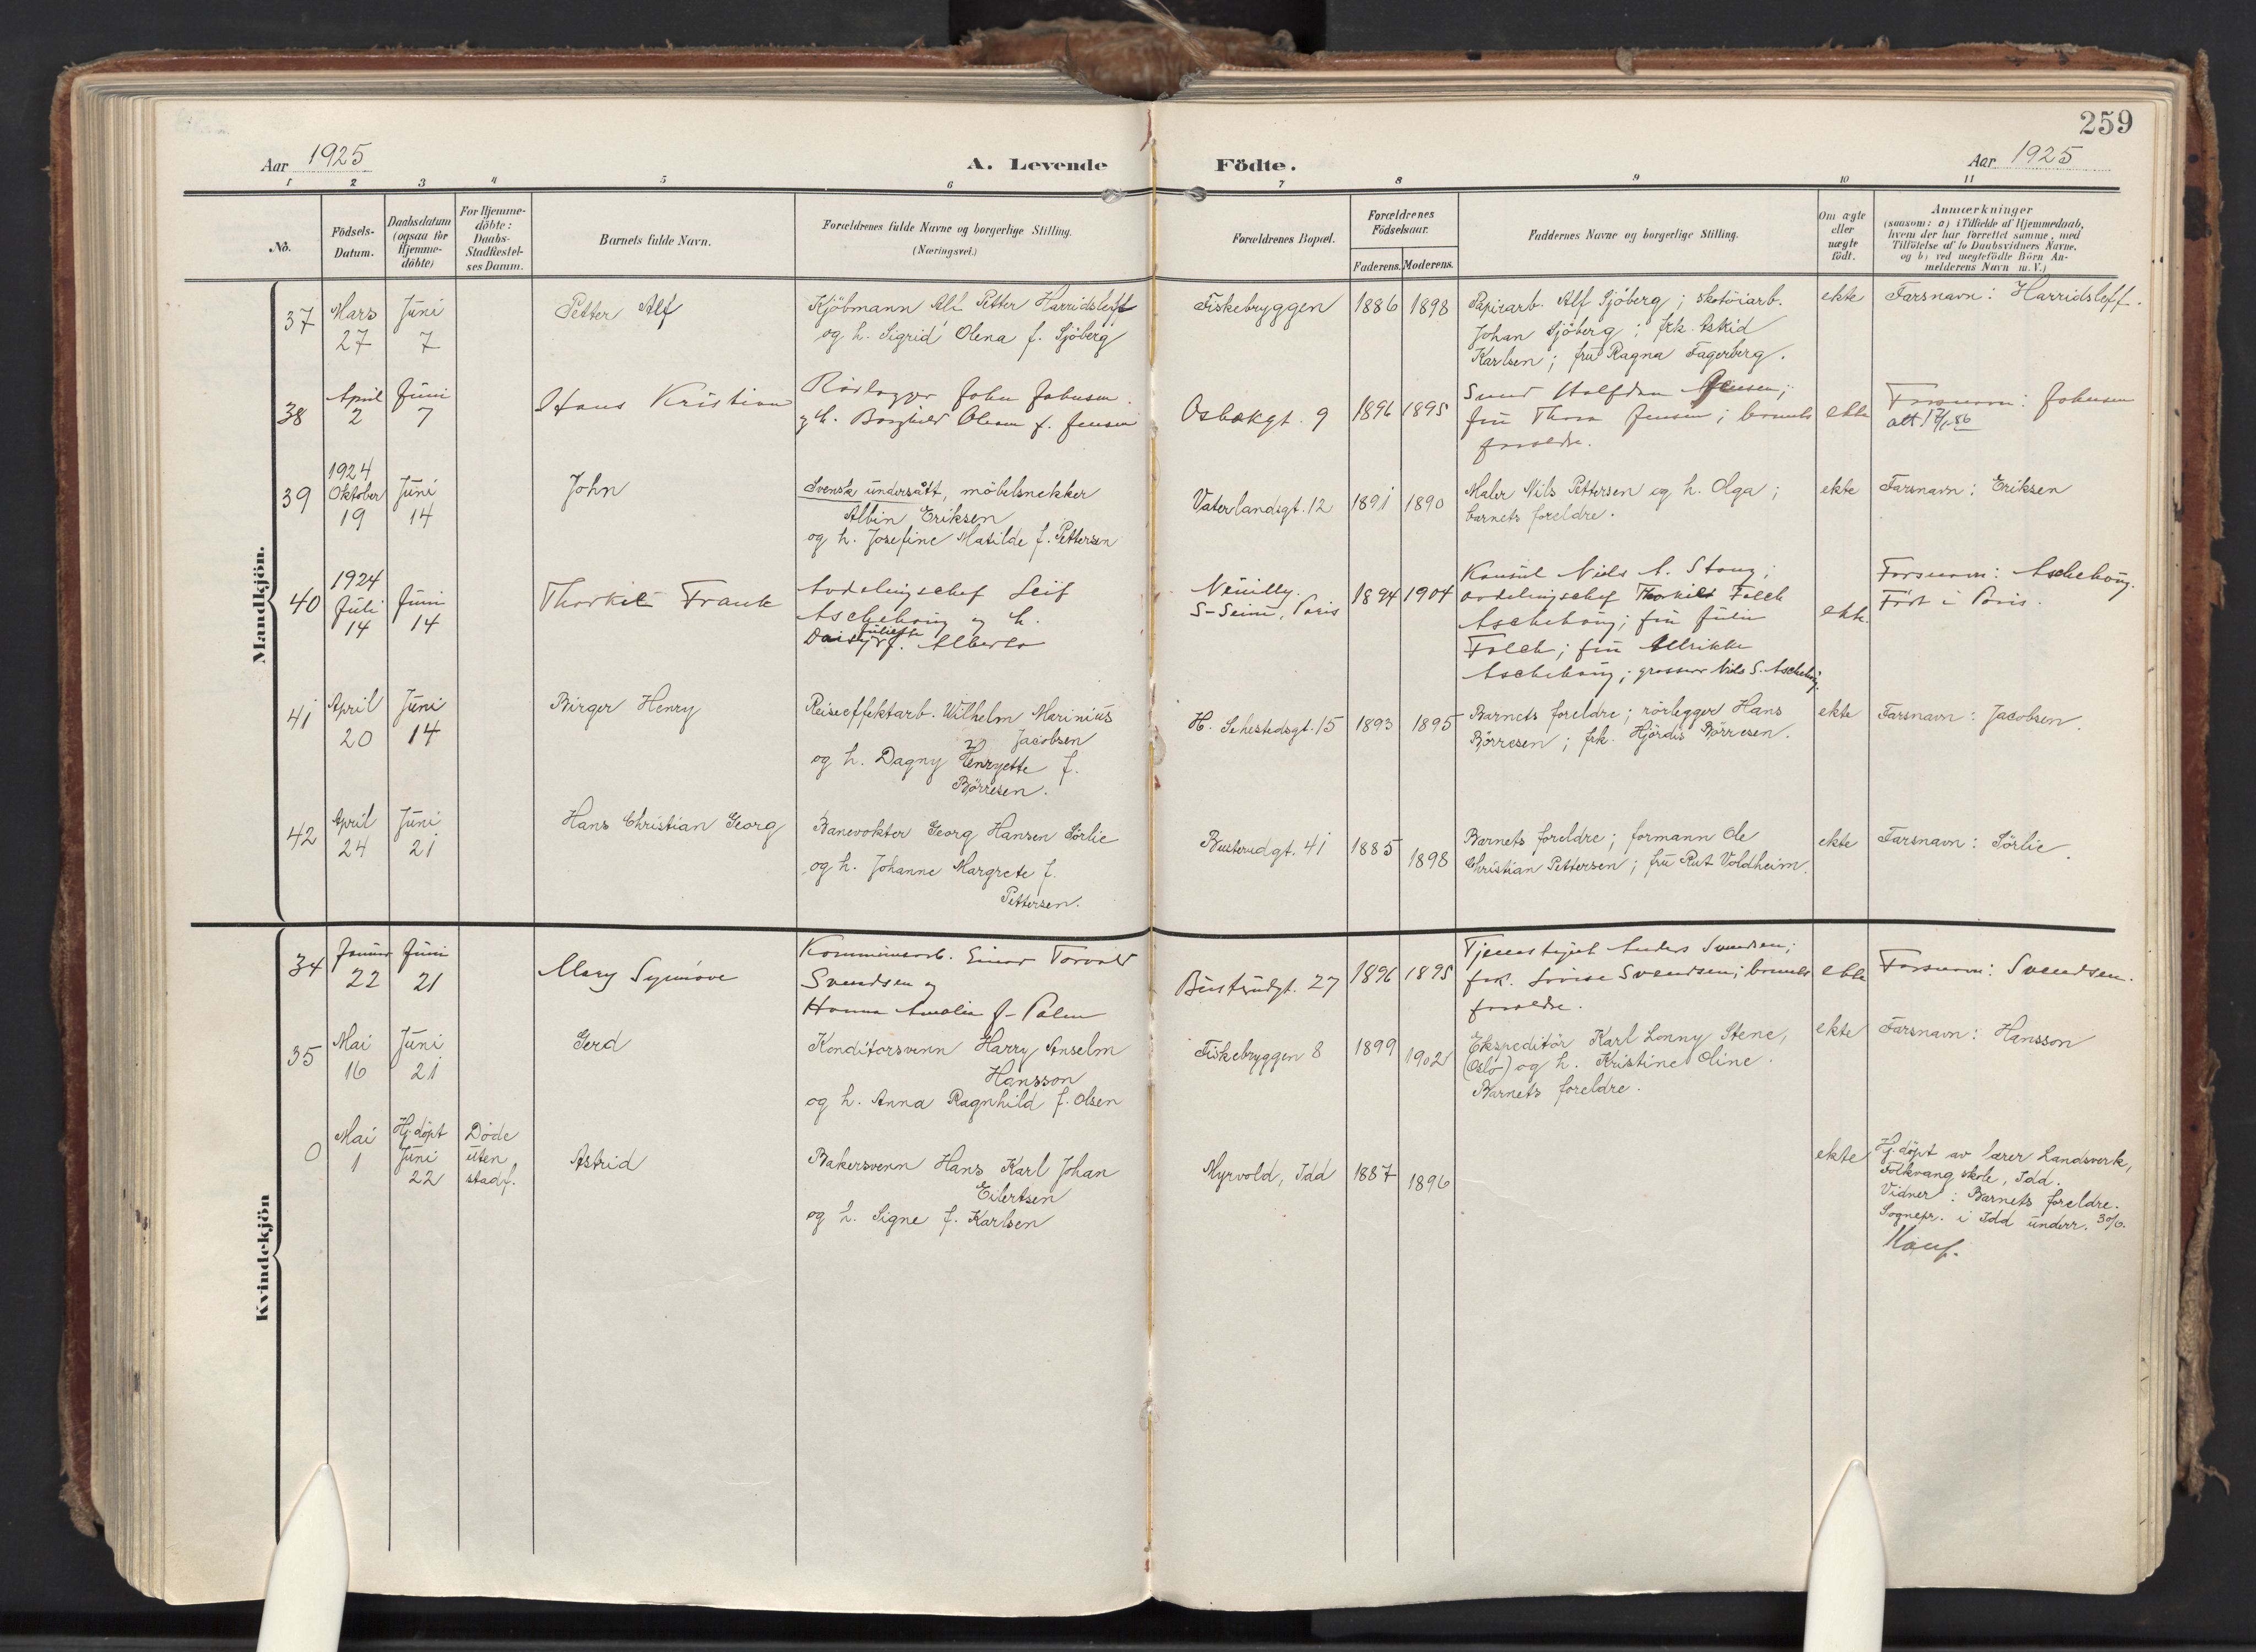 259
Aar 1925
A. Levende Födte.
Aar 1925
1 2 3 4 5 6 7 8 9 10 11
No.
Födsels-Datum.
Daabsdatum (ogsaa for Hjemme-döbte)
For Hjemme-döbte: Daabs-Stadfestel-ses Datum.
Barnets fulde Navn.
Forældrenes fulde Navne og borgerlige Stilling. (Næringsvei.)
Forældrenes Bopæl.
Forældrenes Födselsaar.
Faderens. Moderens.
Faddernes Navne og borgerlige Stilling.
Om ægte eller uægte födt.
Anmærkninger
(saasom: a) i Tilfælde af Hjemmedaab,
hvem der har forrettet samme, med
Tilföielse af to Daabsvidners Navne.
og b) ved uegtefödte Börn An-
melderens Navn m. V.)
Mandkjön.
37
Mars 27
Juni 7
Petter Alf
Kjöbmann Alf Petter Harridsleff
og h. Sigrid Olena f. Sjöberg
Fiskebryggen
1886 1898
Papirarb. Alf Sjöberg; skotöiarb.
Johan Sjöberg; frk. Astrid
Karlsen; fru Ragna Fagerberg.
ekte
Farsnavn: Harridsleff.
38
April 2
Juni 7
Hans Kristian
Rörlegger John Johnsen
og h. Borghild Oleane f. Jensen
Osbækgt. 9
1896 1895
Halfdan Jensen;
fru Thora Jensen; barnets
foreldre.
ekte
Farsnavn: Johnsen
att 17/1-86
39
1924 Oktober 19
Juni 14
John
Svensk undersått, möbelsnekker
Albin Eriksen
og h. Josefine Matilde f. Pettersen
Vaterlandsgt. 12
1891 1890
Maler Nils Pettersen og h. Olga;
barnets foreldre.
ekte
Farsnavn: Eriksen
40
1924 Juli 14
Juni 14
Thorkil Frank
Avdelingschef Leif
Aschehoug og h.
Daisy Juliette f. Alberto
Neuilly
S-Seine, Paris
1894 1904
Konsul Niels A. Stang;
avdelingschef Thorkild Falch
Aschehoug; fru Julie
Falch; fru Ullrikke
Aschehoug; grosserer Nils S. Aschehoug.
ekte.
Farsnavn: Aschehoug.
Födt i Paris.
41
April 20
Juni 14
Birger Henry
Reiseeffektarb. Wilhelm Marinius
Jacobsen
og h. Dagny Henryette f.
Börresen.
H. Sehestedsgt. 15
1893 1895
Barnets foreldre; rörlegger Hans
Börresen; frk. Hjördis Börresen.
ekte
Farsnavn: Jacobsen.
42
April 24
Juni 21
Hans Christian Georg
Banevokter Georg Hansen Sörlie
og h. Johanne Margrete f.
Pettersen.
Busterudgt. 41
1885 1898
Barnets foreldre; formann Ole
Christian Pettersen; fru Rut Voldheim.
ekte
Farsnavn: Sörlie.
Kvindekjön
34
Januar 22
Juni 21
Mary Synnöve
Kommunearb. Einar Torvald
Svendsen og
Hanna Amalie f. Palm
Busterudgt. 27
1896 1895
Anders Svendsen;
frk. Lovise Svendsen; barnets
foreldre.
ekte
Farsnavn: Svendsen.
35
Mai 16
Juni 21
Gerd
Konditorsvenn Harry Anselm
Hansson
og h. Anna Ragnhild f. Olsen
Fiskebryggen 8
1899 1902
Ekspeditör Karl Lonny Stene,
(Oslo) og h. Kristine Oline.
Barnets foreldre.
ekte
Farsnavn: Hansson
0
Mai 1
Hj.döpt Juni 22
Döde uten stadf.
Astrid
Bakersvenn Hans Karl Johan
Eilertsen
og h. Signe f. Karlsen
Myrvold, Idd
1887 1896
ekte
Hj.döpt av lærer Landsverk,
Folkvang skole, Idd.
Vidner: Barnets foreldre.
Sognepr. i Idd underr. 30/6.